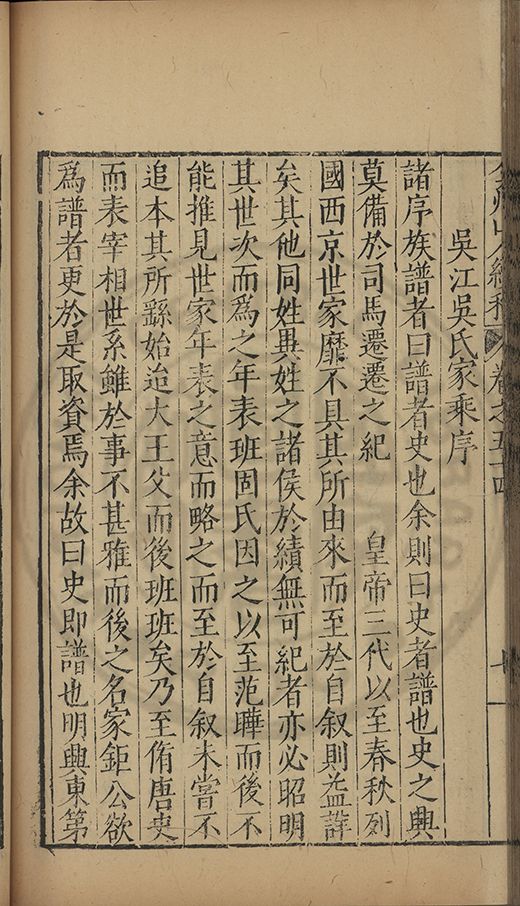 卷之五十四
吳江吳氏家乘序
諸序族譜者曰譜者史也余則曰史者譜也史之興
莫備於司馬遷遷之紀　皇帝三代以至春秋列
國西京世家靡不具其所由來而至於自叙則益詳
矣其他同姓異姓之諸侯於績無可紀者亦必昭明
其世次而爲之年表班固氏因之以至范曄而後不
能推見世家年表之意而略之而至於自叙未嘗不
追本其所繇始迨大王父而後班班矣乃至脩唐史
而表宰相世系雖於事不甚雅而後之名家鉅公欲
爲譜者更於是取資焉余故曰史即譜也明興東第